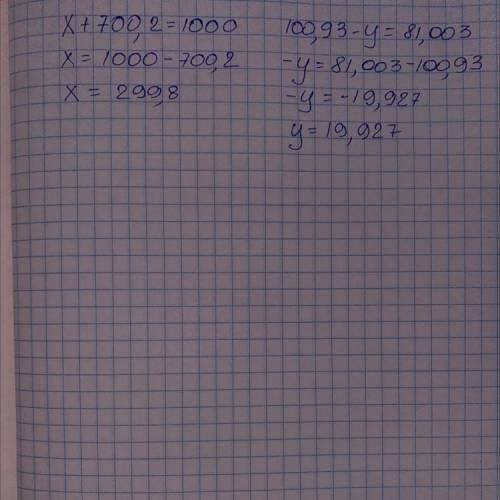 x + 700,2 = 1000
x = 1000 - 700,2
x = 299,8
100,93 - y = 81,003
-y = 81,003 - 100,93
-y = -19,927
y = 19,927